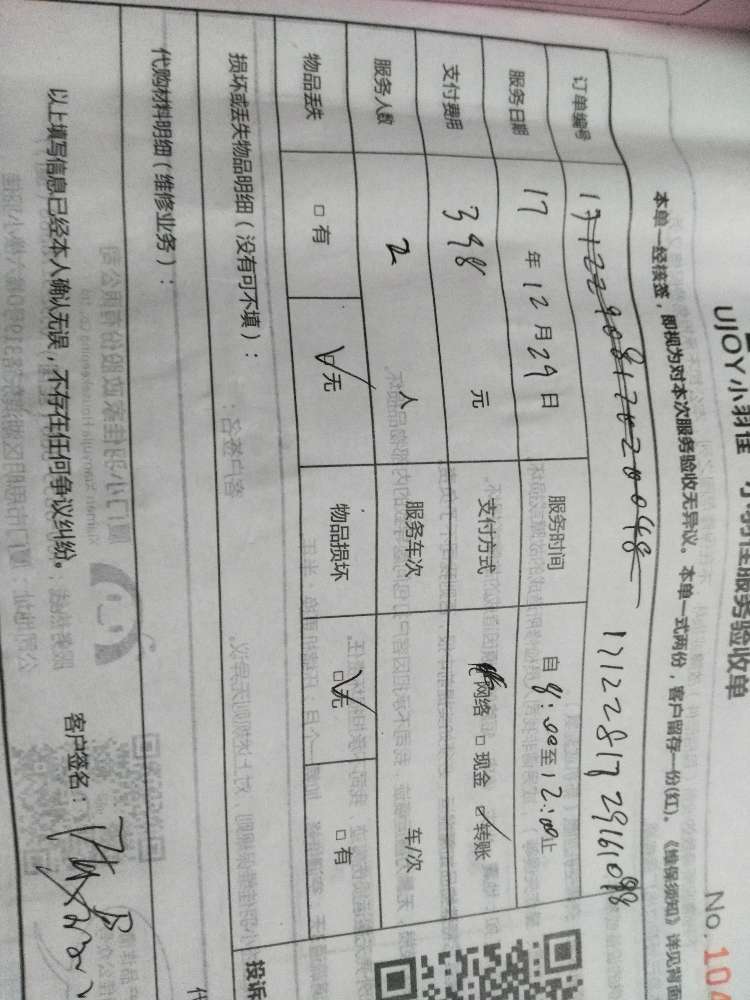 No.104
UJOY小羽佳 小羽佳服务验收单
本单一经核签，即视为对本次服务验收无异议。本单一式两份，客户留存一份(红)。《维保须知》详见背面
订单编号 17122908170200048 1712281729161098
服务日期 17年12月29日 服务时间 自8:00至12:00止
支付费用 398元 支付方式 网络 □现金 ☑转账
服务人数 2人 服务车次 车/次
物品丢失 □有 ☑无 物品损坏 ☑无 □有
损坏或丢失物品明细（没有可不填）：
代购材料明细（维修业务）：
投诉
以上填写信息已经本人确认无误，不存在任何争议纠纷。 客户签名：